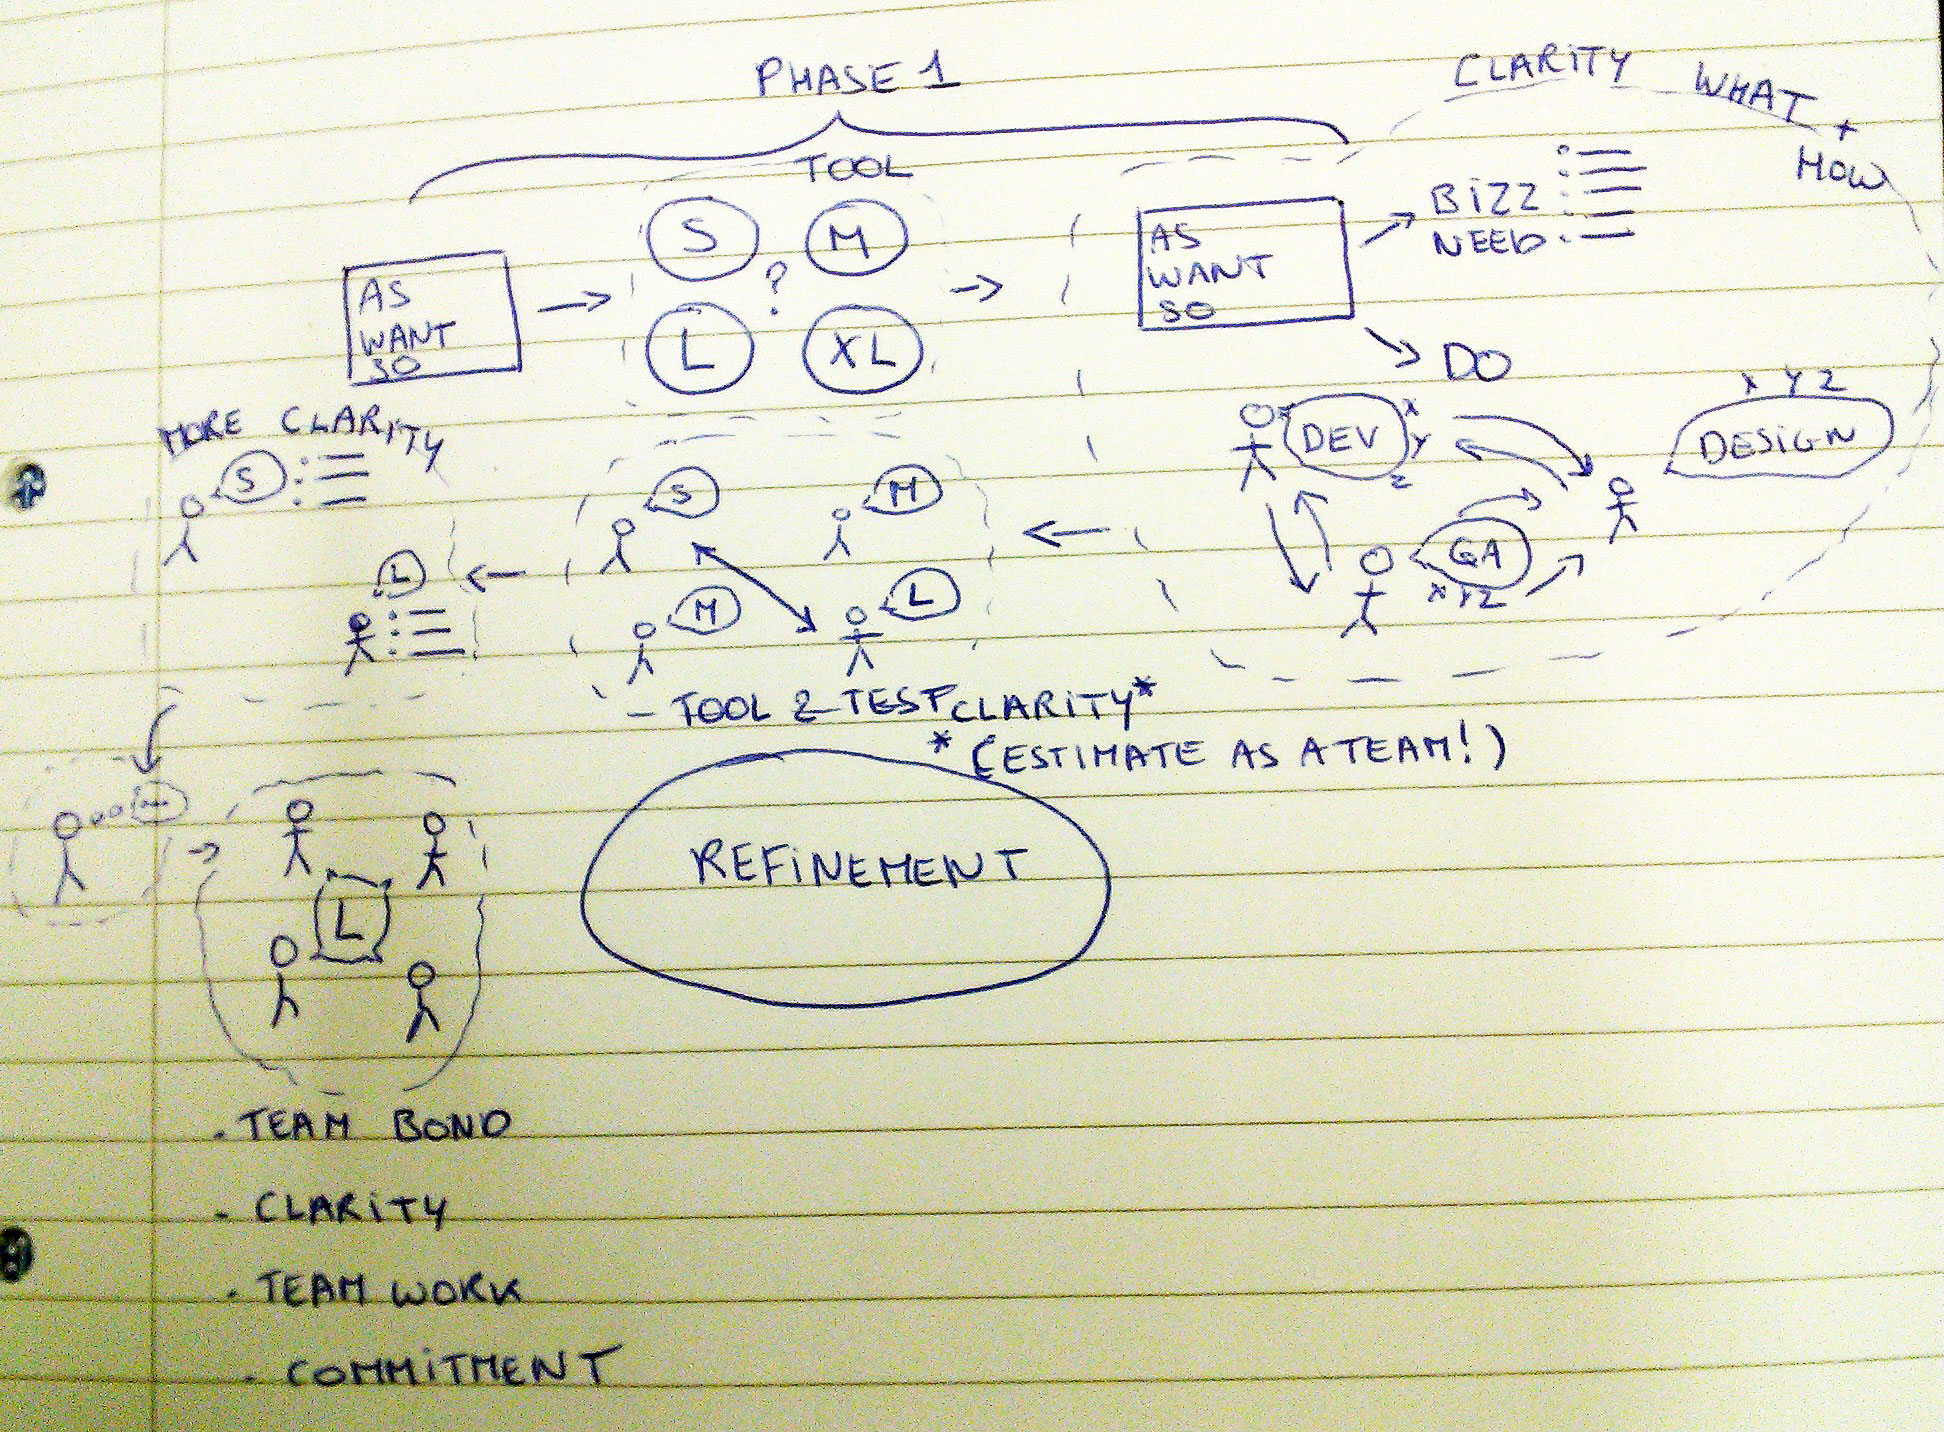 PHASE 1
CLARITY WHAT +
HOW
TOOL
S
M
?
L
XL
AS
WANT
SO
AS
WANT
SO
BIZZ
NEED
DO
MORE CLARITY
S
L
S
M
M
L
DEV
X
Y
Z
X Y Z
DESIGN
QA
X Y Z
- TOOL 2 TEST CLARITY*
* (ESTIMATE AS A TEAM!)
...
L
REFINEMENT
. TEAM BOND
- CLARITY
. TEAM WORK
. COMMITMENT